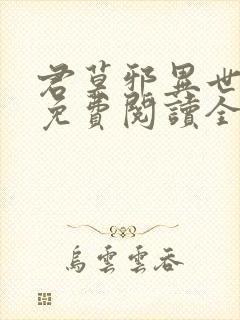 君莫邪異世
免費閱讀全
烏雲雲吞